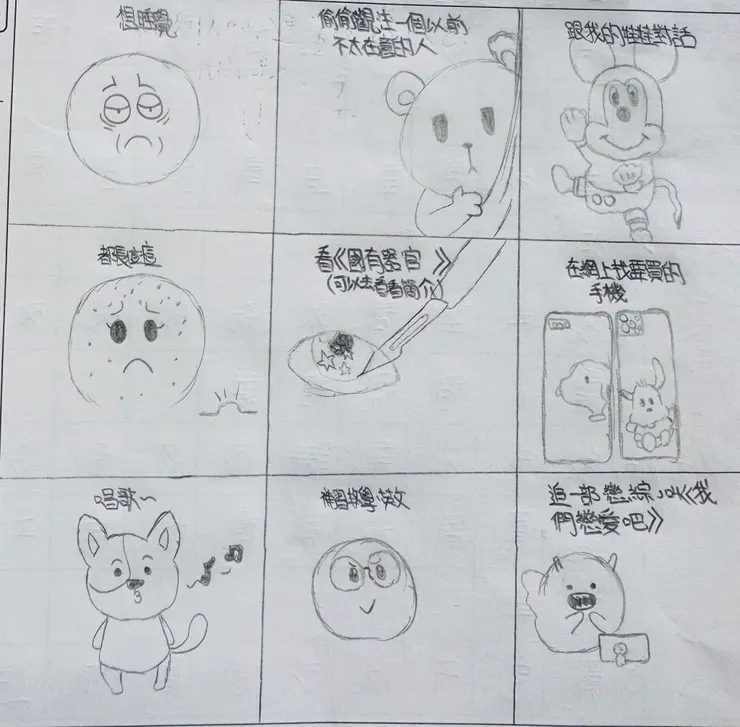 想睡覺
偷偷觀注一個以前
不太在意的人
跟我的娃娃對話
都長痘痘
看《國有器官》
(可以去看看簡介)
在網上找要買的
手機
唱歌~
補習 數學 英文
追一部戀綜,叫《我
們戀愛吧》